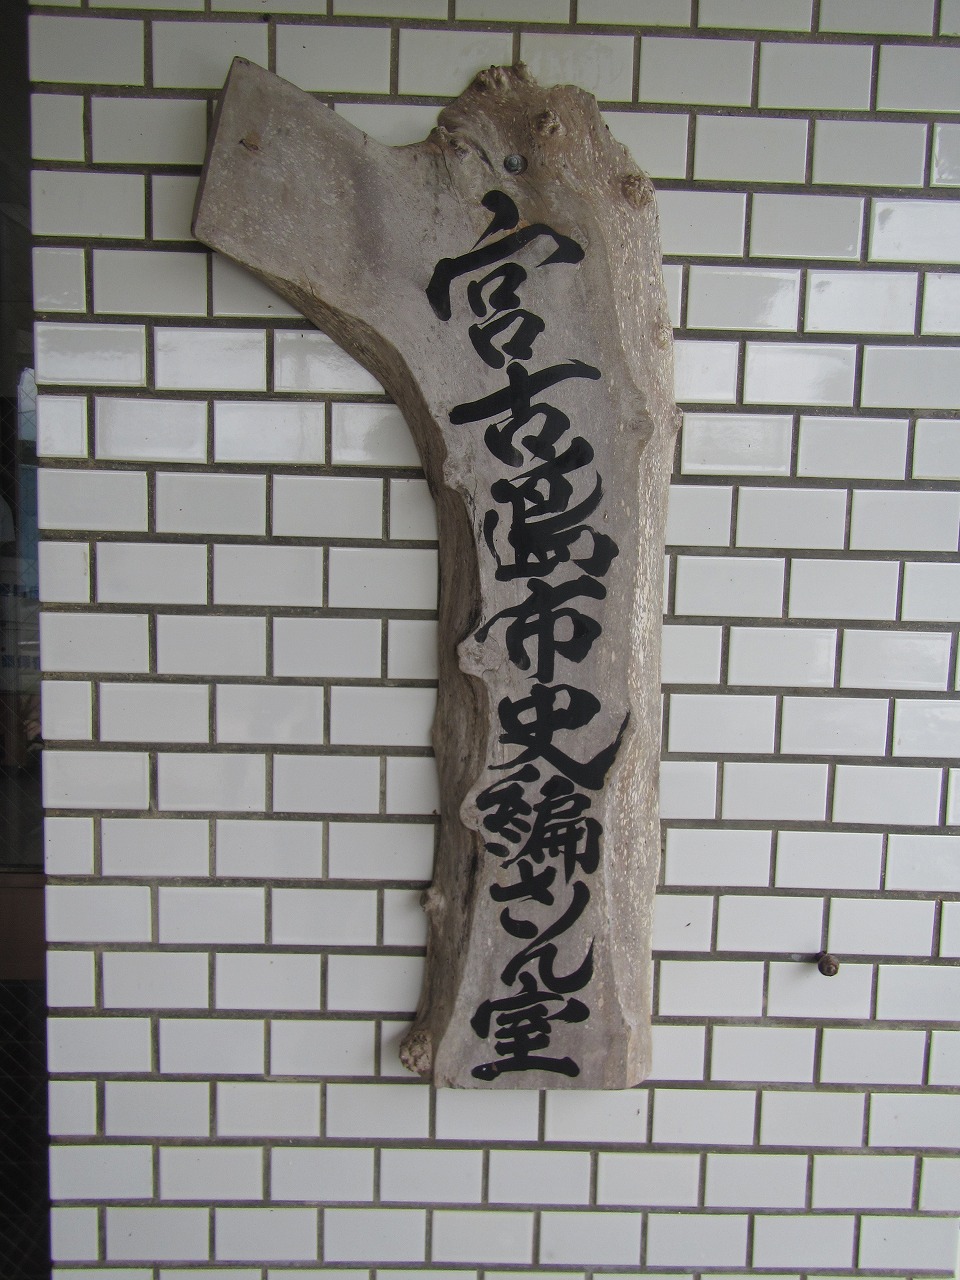 宮古島市史編さん室